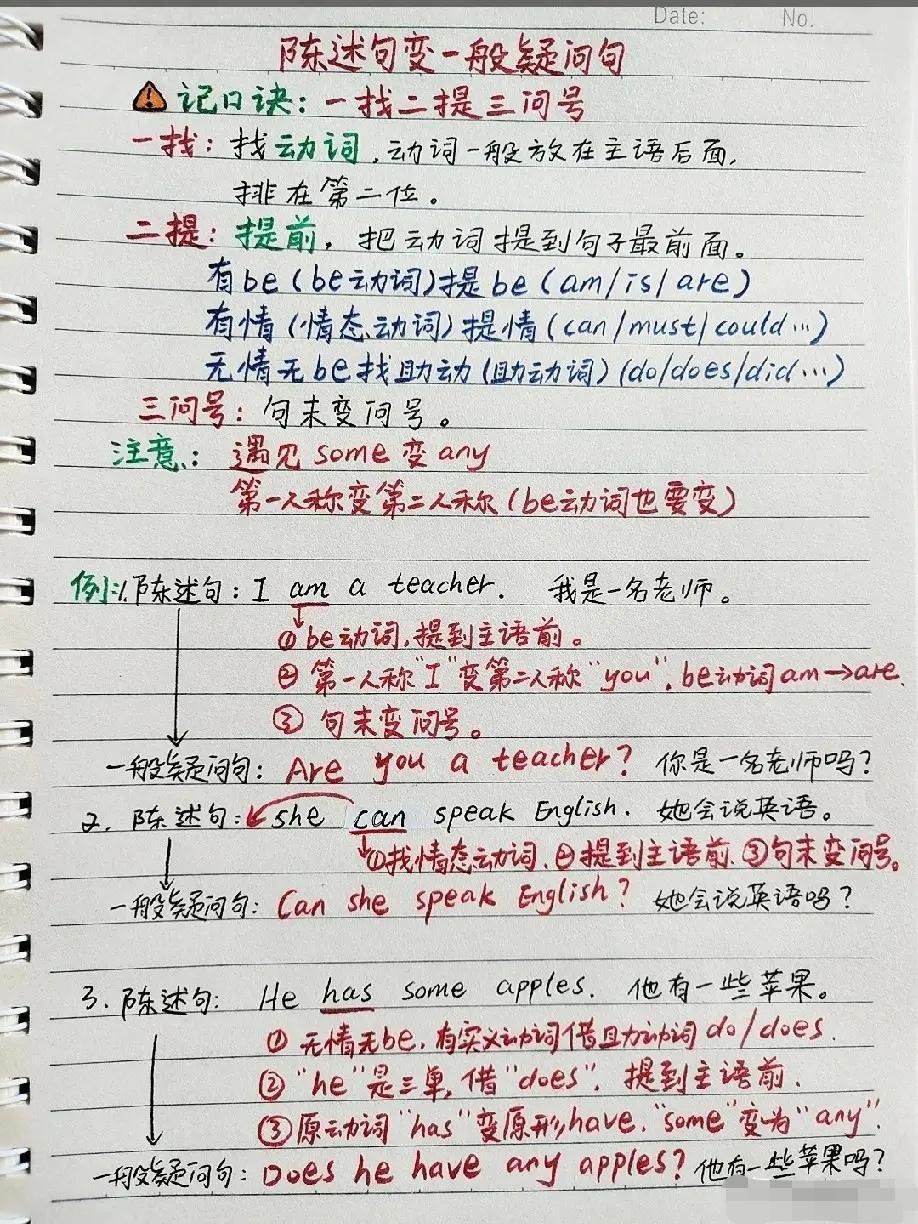 Date: No.
陈述句变一般疑问句
记口诀：一找二提三问号
一找：找动词，动词一般放在主语后面，
排在第二位。
二提：提前，把动词提到句子最前面。
有be（be动词）提be（am/is/are）
有情（情态动词）提情（can/must/could…）
无情无be找助动（助动词）（do/does/did…）
三问号：句末变问号。
注意：遇见some变any
第一人称变第二人称（be动词也要变）
例：1.陈述句：I am a teacher. 我是一名老师。
①be动词，提到主语前。
②第一人称"I"变第二人称"you"，be动词am→are.
③句末变问号。
一般疑问句：Are you a teacher? 你是一名老师吗？
2. 陈述句：she can speak English. 她会说英语。
①找情态动词、②提到主语前、③句末变问号。
一般疑问句：Can she speak English? 她会说英语吗？
3. 陈述句：He has some apples. 他有一些苹果。
①无情无be，有实义动词借助动词do/does.
②"he"是三单，借"does"，提到主语前.
③原动词"has"变原形have，"some"变为"any".
一般疑问句：Does he have any apples? 他有一些苹果吗？